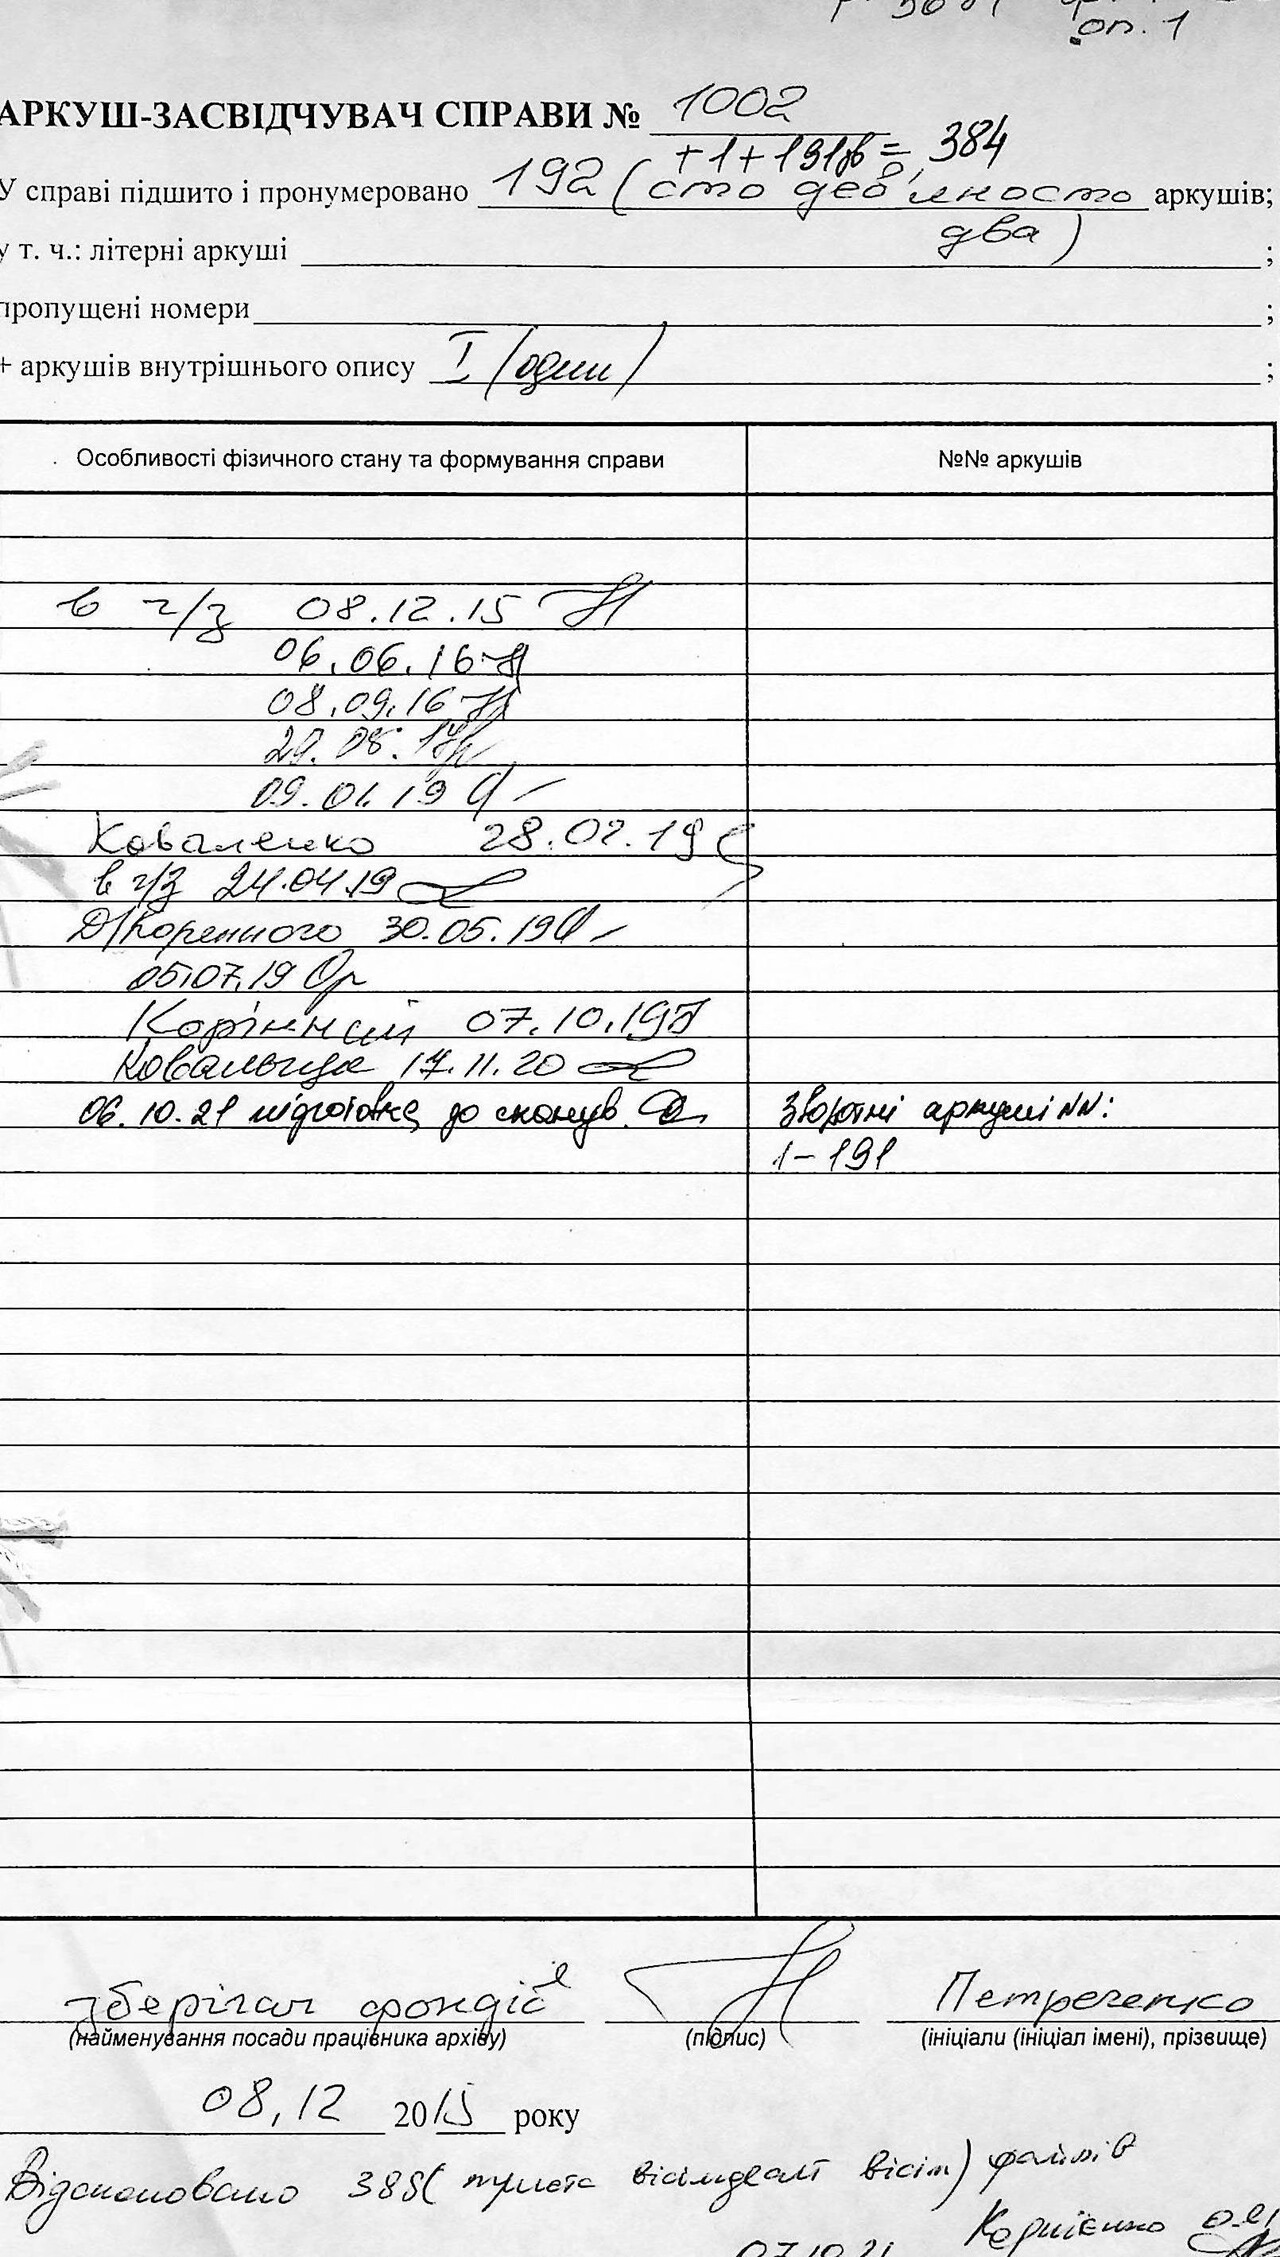 оп. 1
АРКУШ-ЗАСВІДЧУВАЧ СПРАВИ № 1002
+1+191зв = 384
У справі підшито і пронумеровано 192 (сто дев'яносто аркушів;
два)
у т. ч.: літерні аркуші ;
пропущені номери ;
+ аркушів внутрішнього опису I (один) ;
Особливості фізичного стану та формування справи №№ аркушів
в ч/з 08.12.15
06.06.16
08.09.16
29.08.17
09.01.19
Коваленко 28.02.19
в ч/з 24.04.19
Д/Коренного 30.05.19
05.07.19
07.10.19
17.11.20
06.10.21 підготовка до сканув. Зворотні аркуші NN:
1-191
зберігач фондів Петреченко
(найменування посади працівника архіву) (підпис) (ініціали (ініціал імені), прізвище)
08.12 2015 року
Відскановано 388 (триста вісімдесят вісім) файлів
Корнієнко
07.10.21